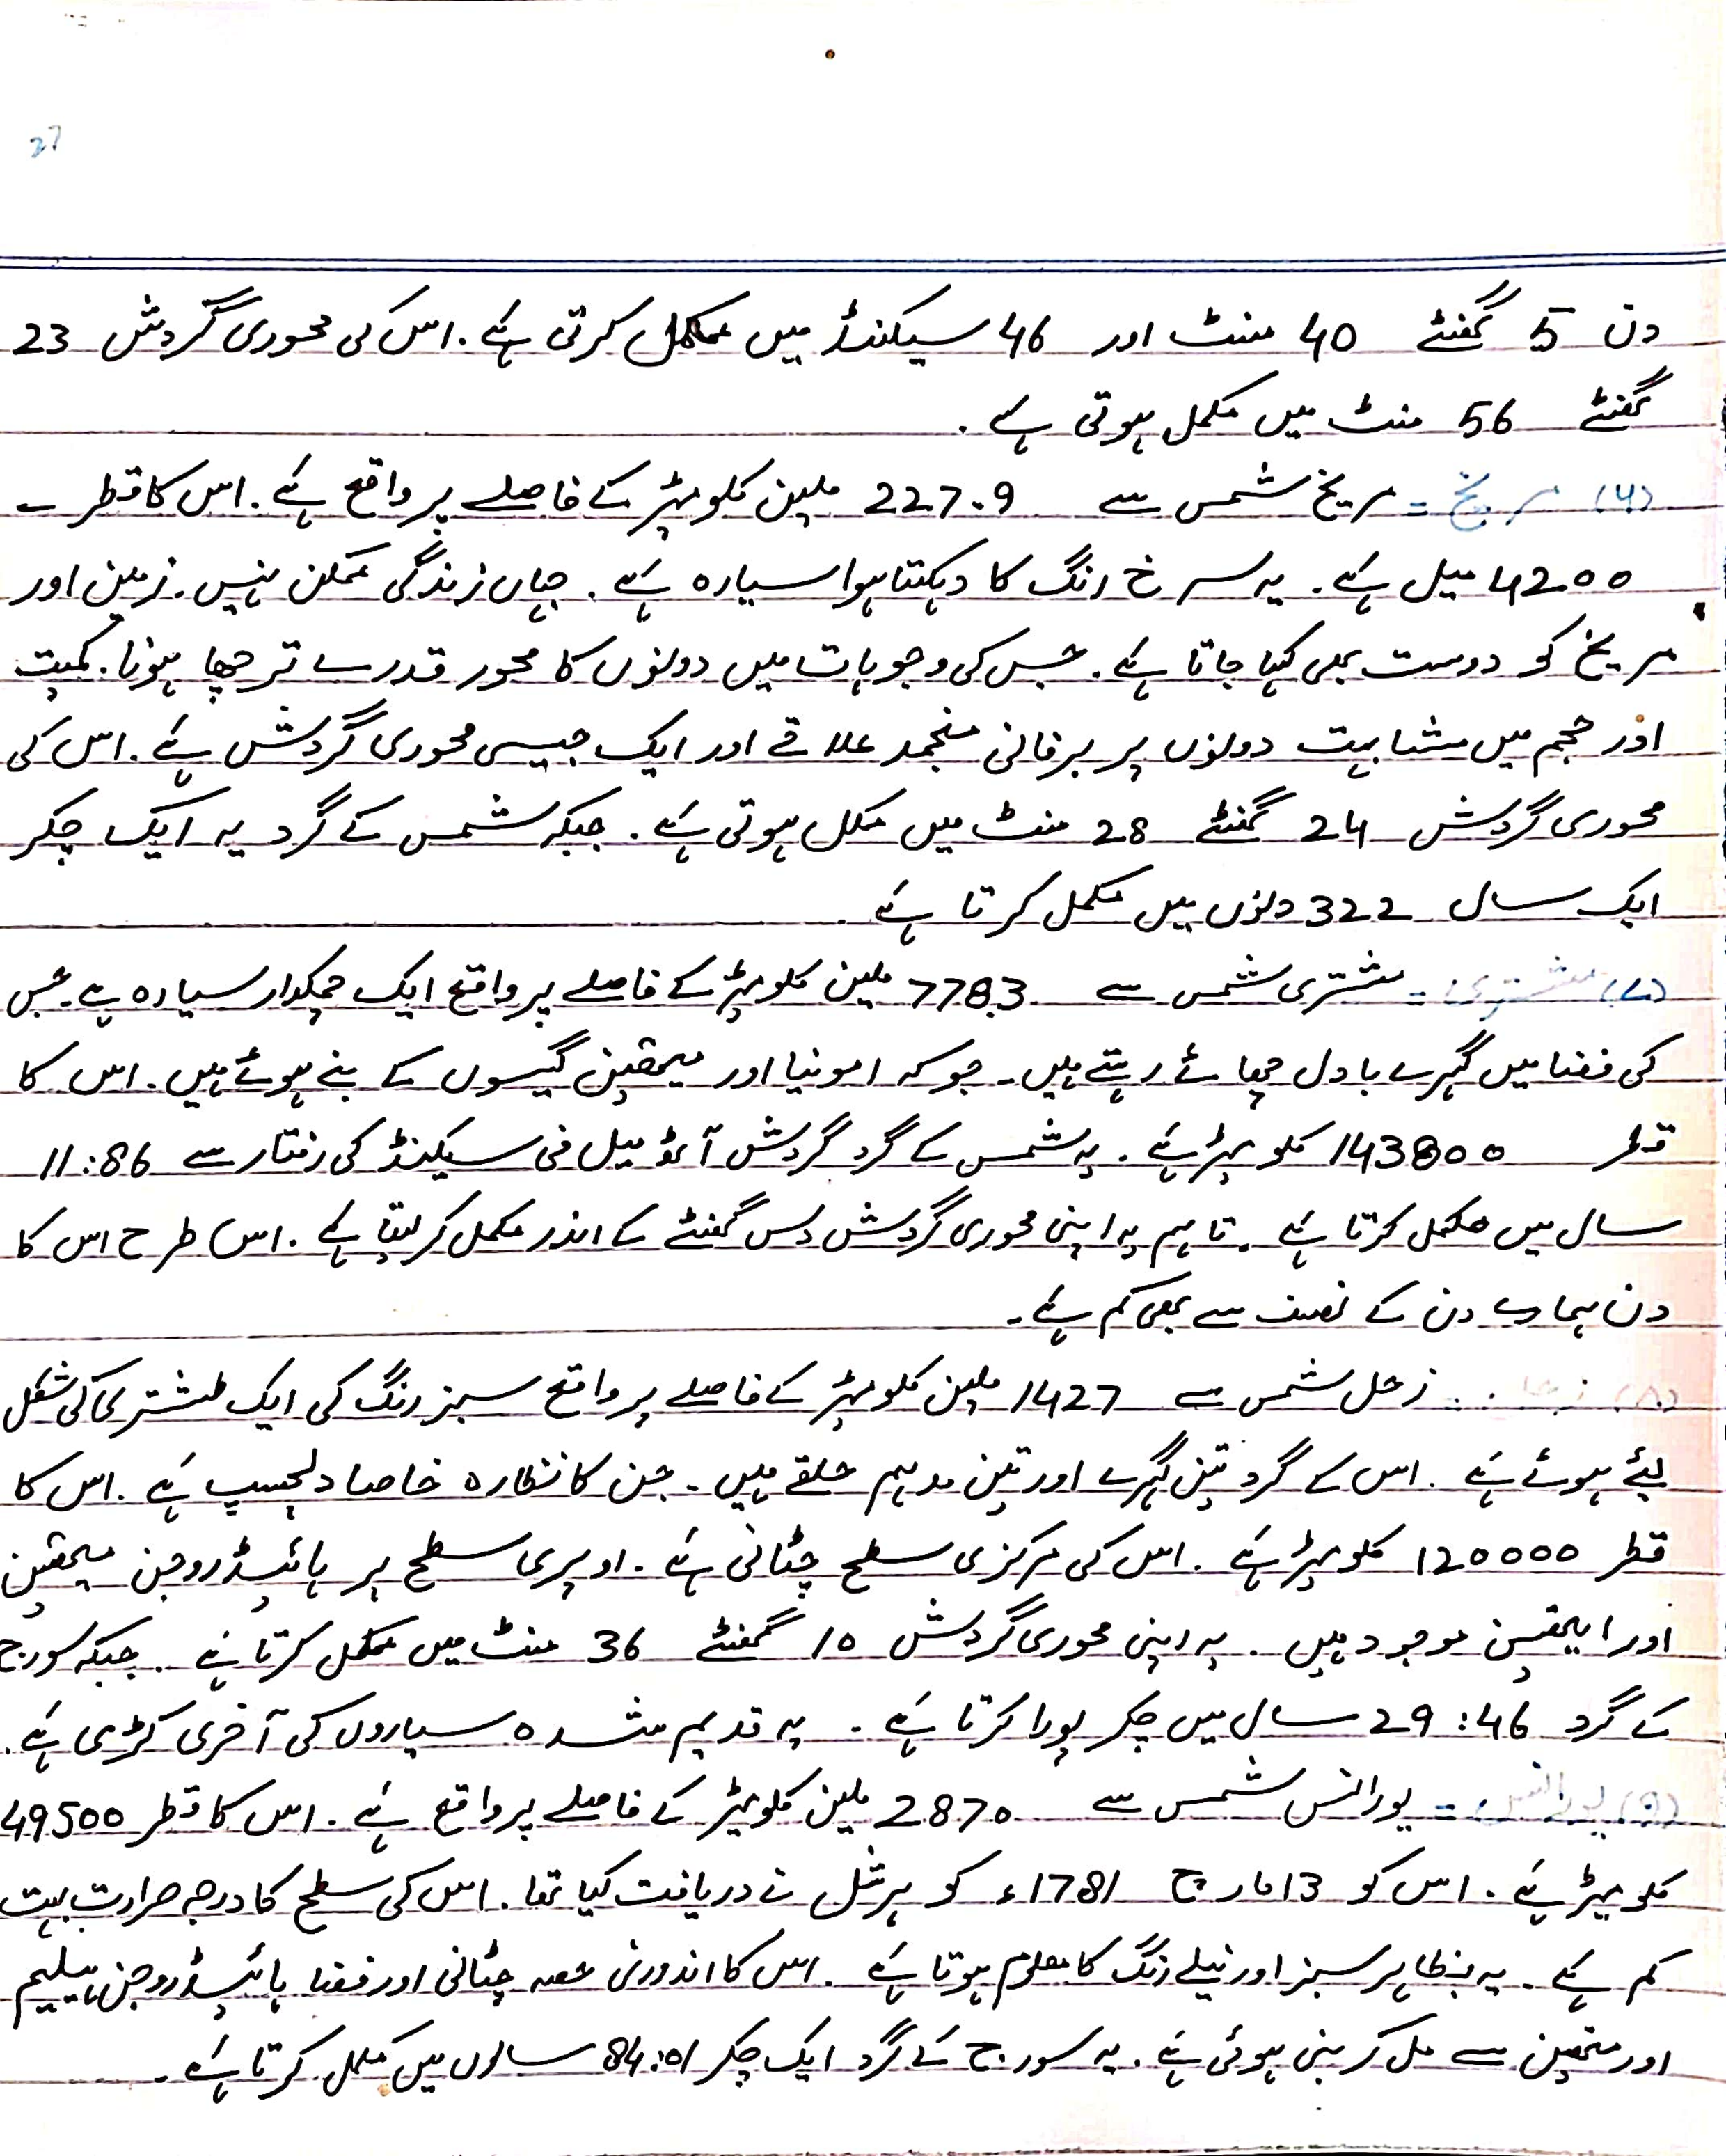 27
دن 5 گھنٹے 40 منٹ اور 46 سیکنڈ میں مکمل کرتی ہے۔ اس کی محوری گردش 23
گھنٹے 56 منٹ میں مکمل ہوتی ہے۔
(۶) مریخ = مریخ شمس سے 227.9 ملین کلومیٹر کے فاصلے پر واقع ہے۔ اس کا قطر ۔
4200 میل ہے۔ یہ سرخ رنگ کا دہکتا ہوا سیارہ ہے۔ جہاں زندگی ممکن نہیں۔ زمین اور
مریخ کو دوست بھی کہا جاتا ہے۔ جس کی وجوہات میں دونوں کا محور قدرے ترچھا ہونا۔ کمیت
اور حجم میں مشابہت دونوں پر برفانی منجمد علاقے اور ایک جیسی محوری گردش ہے۔ اس کی
محوری گردش 24 گھنٹے 28 منٹ میں مکمل ہوتی ہے۔ جبکہ شمس کے گرد یہ ایک چکر
ایک سال 322 دنوں میں مکمل کرتا ہے
(۷) مشتری = مشتری شمس سے 778.3 ملین کلومیٹر کے فاصلے پر واقع ایک چمکدار سیارہ ہے۔ جس
کی فضا میں گہرے بادل چھائے رہتے ہیں۔ جو کہ امونیا اور میتھین گیسوں کے بنے ہوئے ہیں۔ اس کا
قطر 143800 کلومیٹر ہے۔ یہ شمس کے گرد گردش آٹھ میل فی سیکنڈ کی رفتار سے 11:86
سال میں مکمل کرتا ہے۔ تاہم یہ اپنی محوری گردش دس گھنٹے کے اندر مکمل کر لیتا ہے۔ اس طرح اس کا
دن ہمارے دن کے نصف سے بھی کم ہے۔
(۸) زحل = زحل شمس سے 1427 ملین کلومیٹر کے فاصلے پر واقع سبز رنگ کی ایک طشتری کی شکل
لیئے ہوئے ہے۔ اس کے گرد تین گہرے اور تین مدہم حلقے ہیں۔ جن کا نظارہ خاصا دلچسپ ہے۔ اس کا
قطر 120000 کلومیٹر ہے۔ اس کی مرکزی سطح چٹانی ہے۔ اوپری سطح پر ہائیڈروجن میتھین
اور ایتھین موجود ہیں۔ یہ اپنی محوری گردش 10 گھنٹے 36 منٹ میں مکمل کرتا ہے۔ جبکہ سورج
کے گرد 29:46 سال میں چکر پورا کرتا ہے۔ یہ قدیم شدہ سیاروں کی آخری کڑی ہے۔
(۹) یورانس = یورانس شمس سے 2870 ملین کلومیٹر کے فاصلے پر واقع ہے۔ اس کا قطر 49500
کلومیٹر ہے۔ اس کو 13 مارچ 1781ء کو ہرشل نے دریافت کیا تھا۔ اس کی سطح کا درجہ حرارت بہت
کم ہے۔ یہ بظاہر سبز اور نیلے رنگ کا معلوم ہوتا ہے۔ اس کا اندورنی حصہ چٹانی اور فضا ہائیڈروجن ہیلیم
اور متھین سے مل کر بنی ہوئی ہے۔ یہ سورج کے گرد ایک چکر 84:01 سالوں میں مکمل کرتا ہے۔